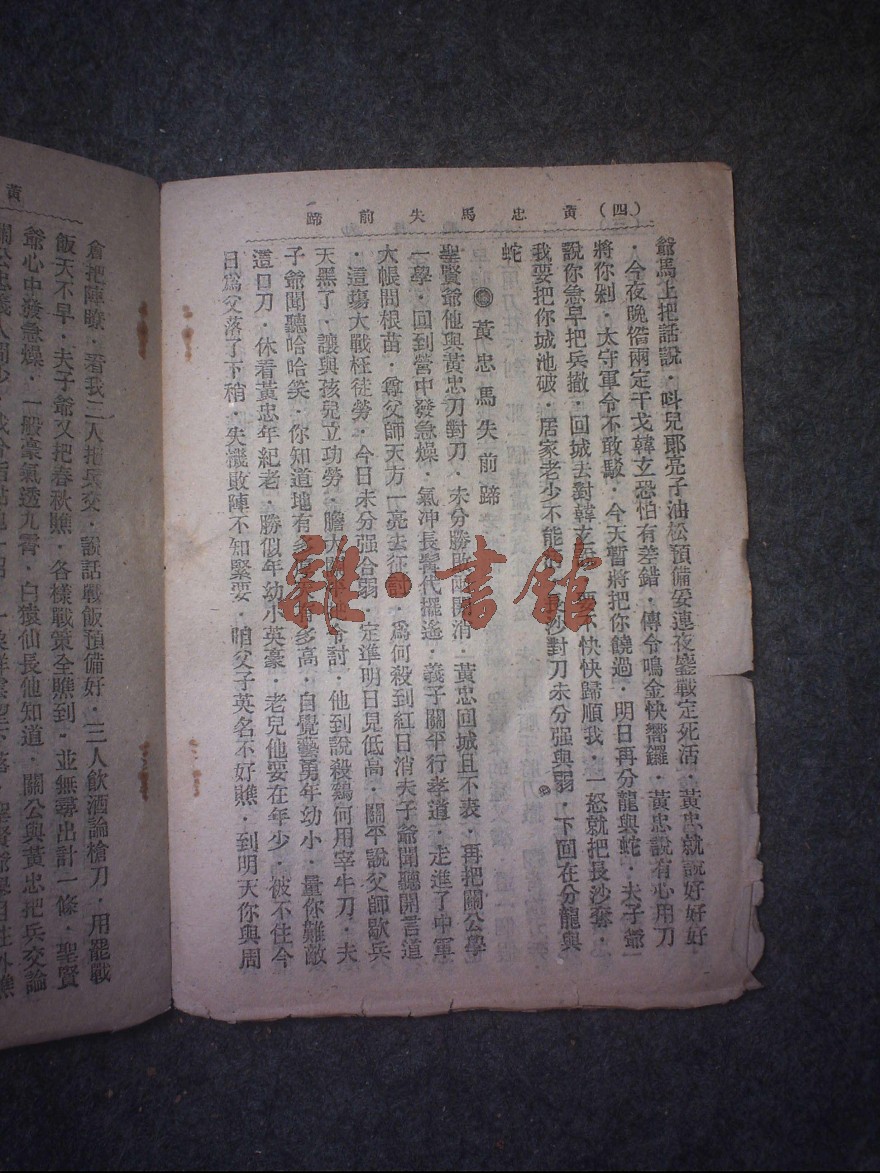 (四) 黃忠馬失前蹄
爺馬上把話說．呌兒郎亮子油松預備妥連夜鏖戰定死活．黃忠就說好好好．
．今夜晚偺兩定干戈韓玄恐怕有差錯．傳令鳴金快響鑼．黃忠說有心用刀
將你剁．太守軍令不敢駁．今天暫將把你饒過．明日再分龍與蛇．夫子爺一
說你急早把兵撤．回城去對韓玄 快快歸順我．一怒就把長沙奪．
我要把你城池破．居家老少不能 沙對刀未分强與弱．下回在分龍與
蛇
黃忠馬失前蹄
聖賢爺他與黃忠刀對刀．未分勝敗兩開消．黃忠回城且不表．再把關公學
一學．回到營中發急燥．氣冲長髯代擺遙．義子關平行孝道．走進了中軍
大帳問根苗．尊父師天方一亮去征討．爲何殺到紅日消夫子爺聞聽開言道
．這塲大戰枉徒勞．今日未分强合弱．定準明日見低高．關平說父師歇兵
天黑了．讓與孩兒立功勞．膽大 令討．他到說殺鷄何用宰牛刀．夫
子爺聞聽哈哈笑．你知道地有多 多高．自覺藝勇年幼小．量你難敵
這口刀．休看黃忠年紀老．勝似年幼小英豪．老兒他要在年少．彼不住今
日爲父落了下稍．失機敗陣不知緊要．咱父子英名不好瞧．到明天你與周
黃
倉把陣瞭．看我二人把兵交．說話戰飯預備好．三人飲酒論槍刀．用罷戰
飯天不早．夫子爺又把春秋瞧．各樣戰策全瞧到．並無尋出計一條．聖賢
爺心中發急燥．一股豪氣透九霄．白猿仙長他知道．關公與黃忠把兵交論
雜·書館